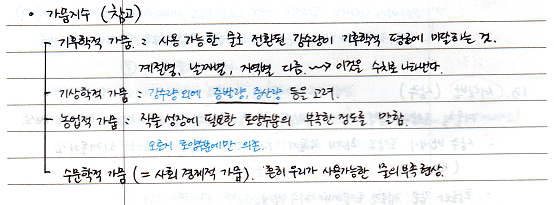 • 가뭄지수 (참고)
기후학적 가뭄 : 사용 가능한 물로 전환된 강수량이 기후학적 평균에 미달하는 것.
계절별, 날짜별, 지역별 다름. ~> 이것을 수치로 나타낸다.
기상학적 가뭄 : 강수량 외에 증발량, 증산량 등을 고려.
농업적 가뭄 : 작물 성장에 필요한 토양수분의 부족한 정도를 말함.
오로지 토양수분에만 의존.
수문학적 가뭄 (= 사회 경제적 가뭄). 흔히 우리가 사용가능한 물의 부족 현상.